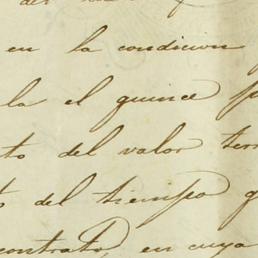 en la condicion
la el quince p
to del valor terr
o del tiempo q
contrato, en cuya